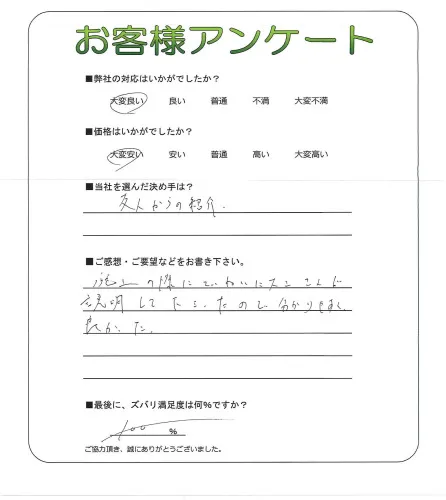 お客様アンケート
■弊社の対応はいかがでしたか？
大変良い 良い 普通 不満 大変不満
■価格はいかがでしたか？
大変安い 安い 普通 高い 大変高い
■当社を選んだ決め手は？
友人からの紹介.
■ご感想・ご要望などをお書き下さい。
施工の際にていねいに
説明して下さったので分かりやすく
良かった.
■最後に、ズバリ満足度は何％ですか？
100 %
ご協力頂き、誠にありがとうございました。